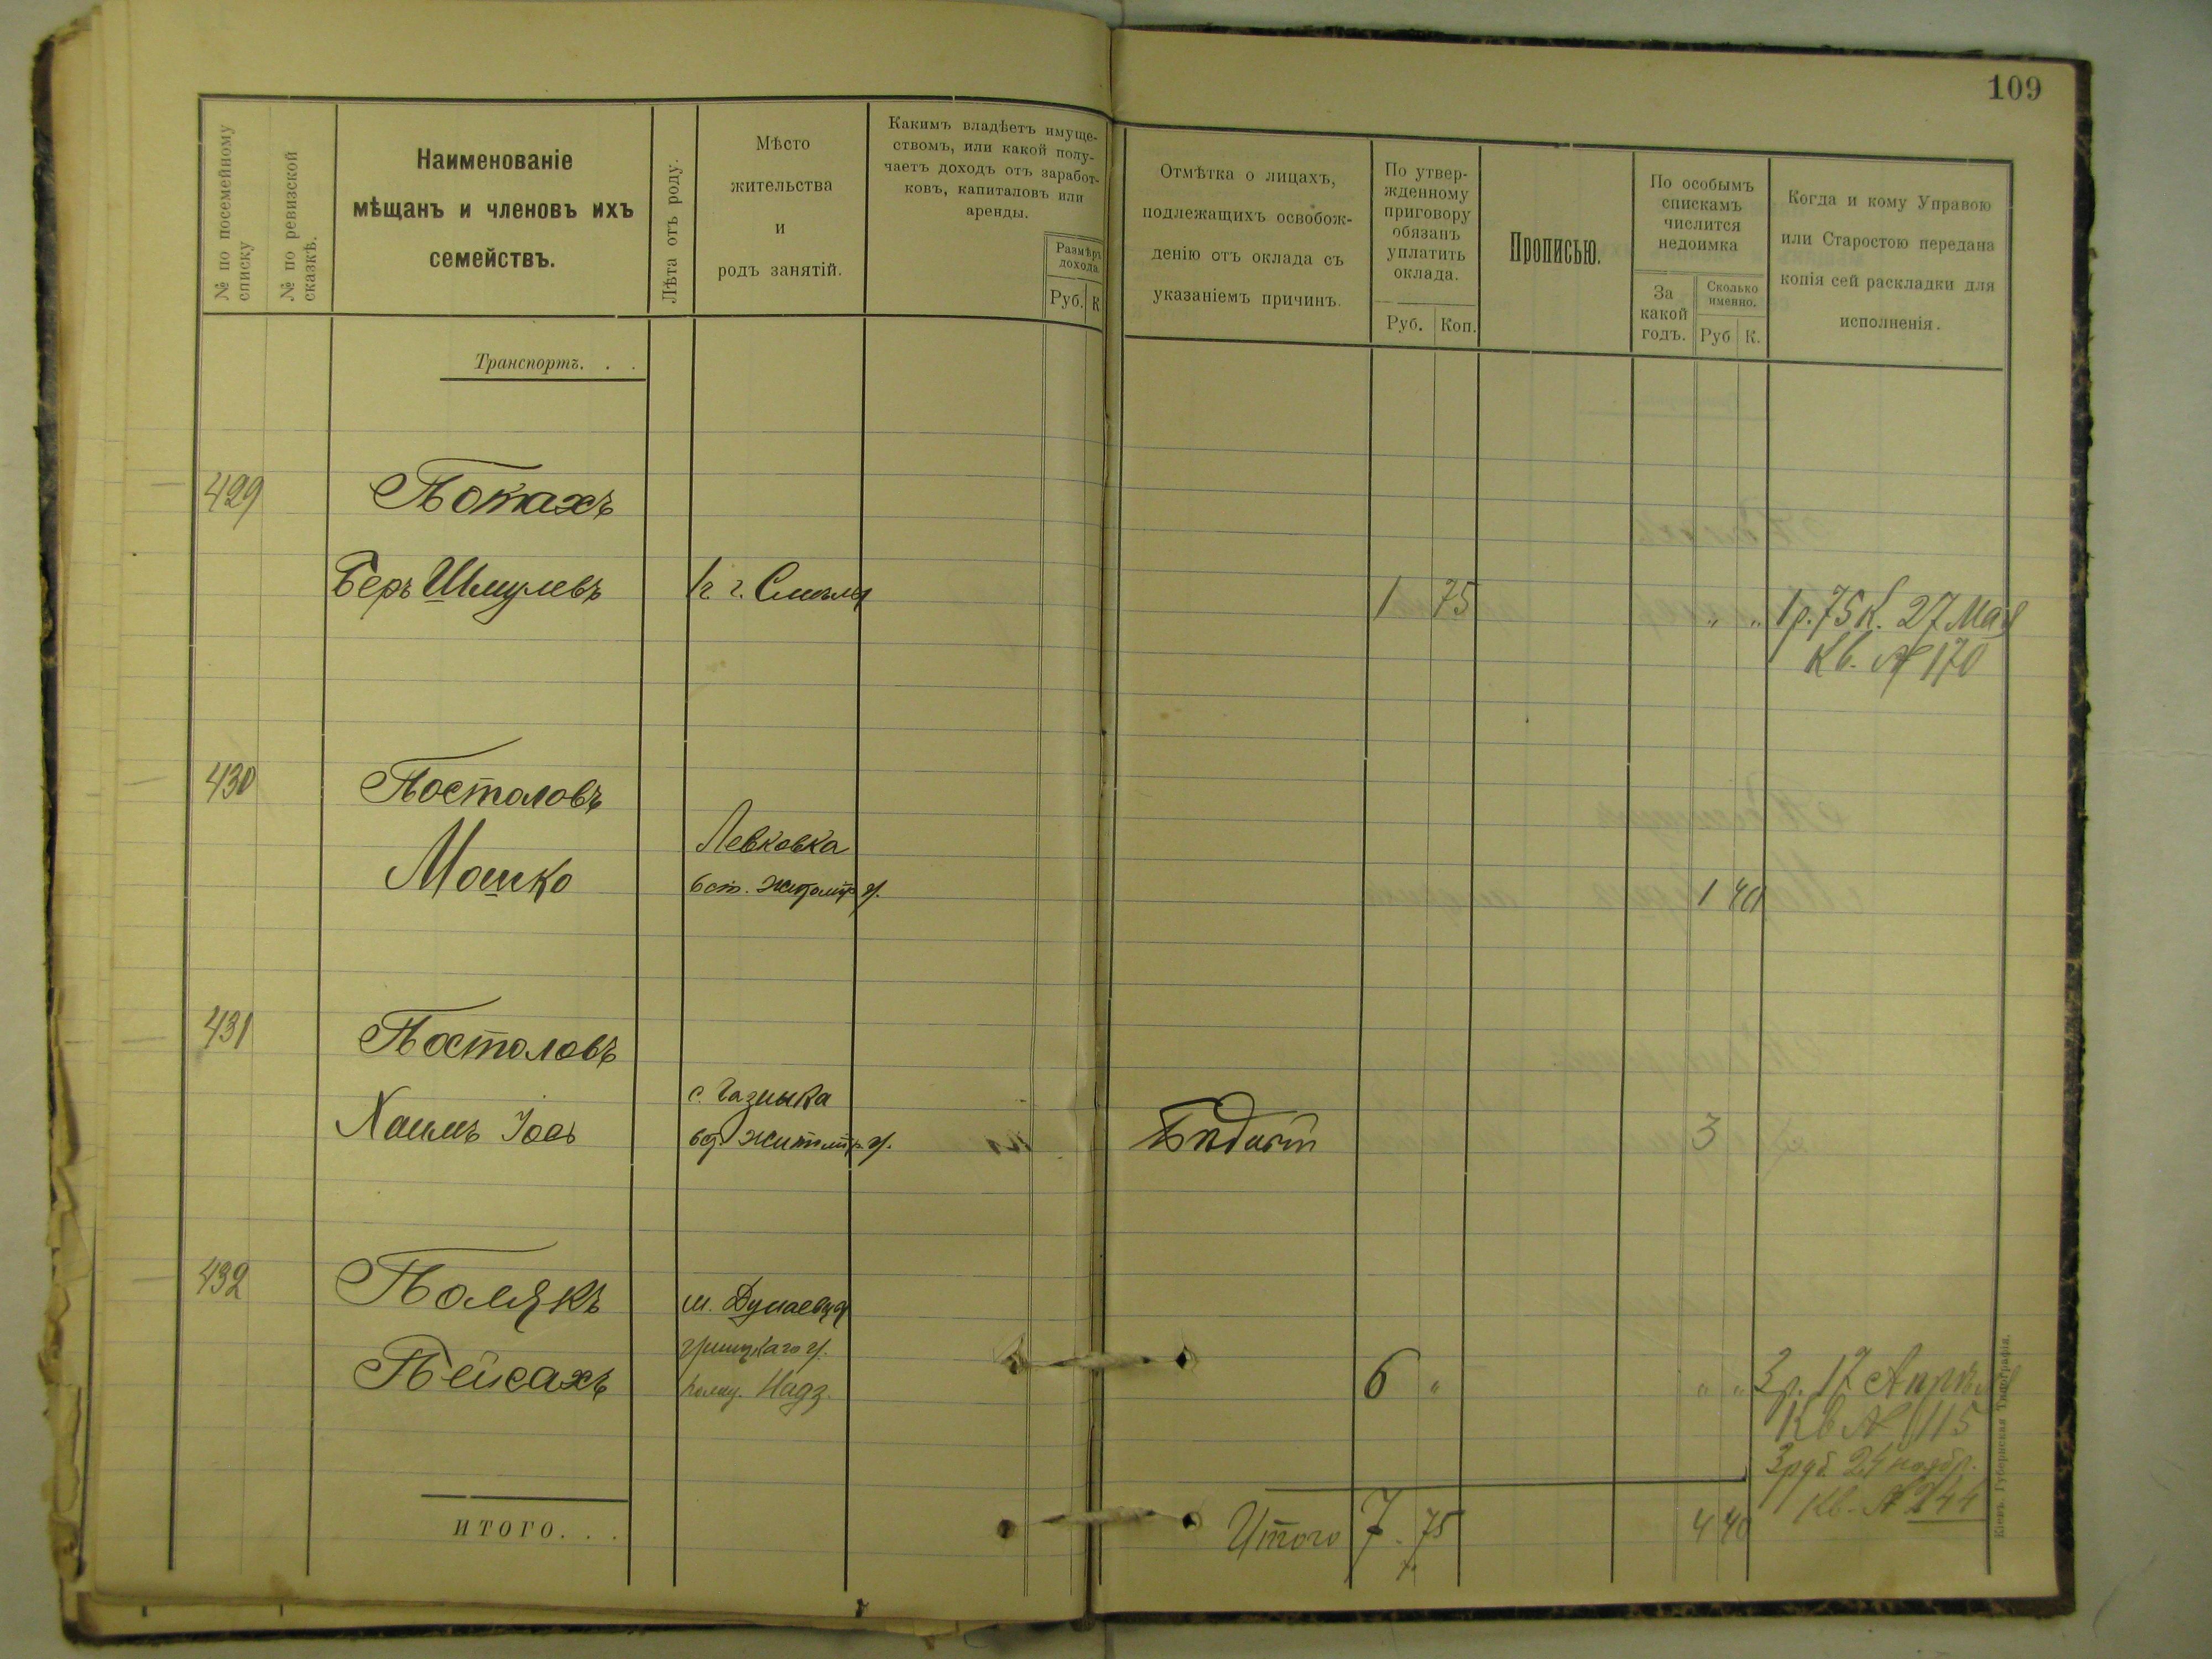 109
№ по посемейному
списку
№ по ревизской
сказкѣ.
Наименованіе
мѣщанъ и членовъ ихъ
семействъ.
Лѣта отъ роду.
Мѣсто
жительства
и
родъ занятій.
Какимъ владѣетъ имуще-
ствомъ, или какой полу-
чаетъ доходъ отъ заработ-
ковъ, капиталовъ или
аренды.
Размѣръ
дохода
Руб. К
Отмѣтка о лицахъ,
подлежащихъ освобож-
денію отъ оклада съ
указаніемъ причинъ.
По утвер-
жденному
приговору
обязанъ
уплатить
оклада.
Руб. Коп.
Прописью.
По особымъ
спискамъ
числится
недоимка
За
какой
годъ.
Сколько
именно.
Руб К.
Когда и кому Управою
или Старостою передана
копія сей раскладки для
исполненія.
Транспортъ. . .
429 Потахъ
Беръ Шмулевъ г. Смѣла 1 75 " " 1 р. 75 к. 27 Мая
Кв. № 170
430 Постоловъ
Мошко Левковка
1 40
431 Постоловъ
Хаимъ Іось с.
3
432 Полякъ м. Дунаевцы
Пейсахъ 6 " " " 3 р. 17 Апрѣля
Кв № 115
3 руб. 24 ноябр.
Кв. № 244
ИТОГО. . .
Итого 7 75 4 40
Кіевъ. Губернская Типографія.